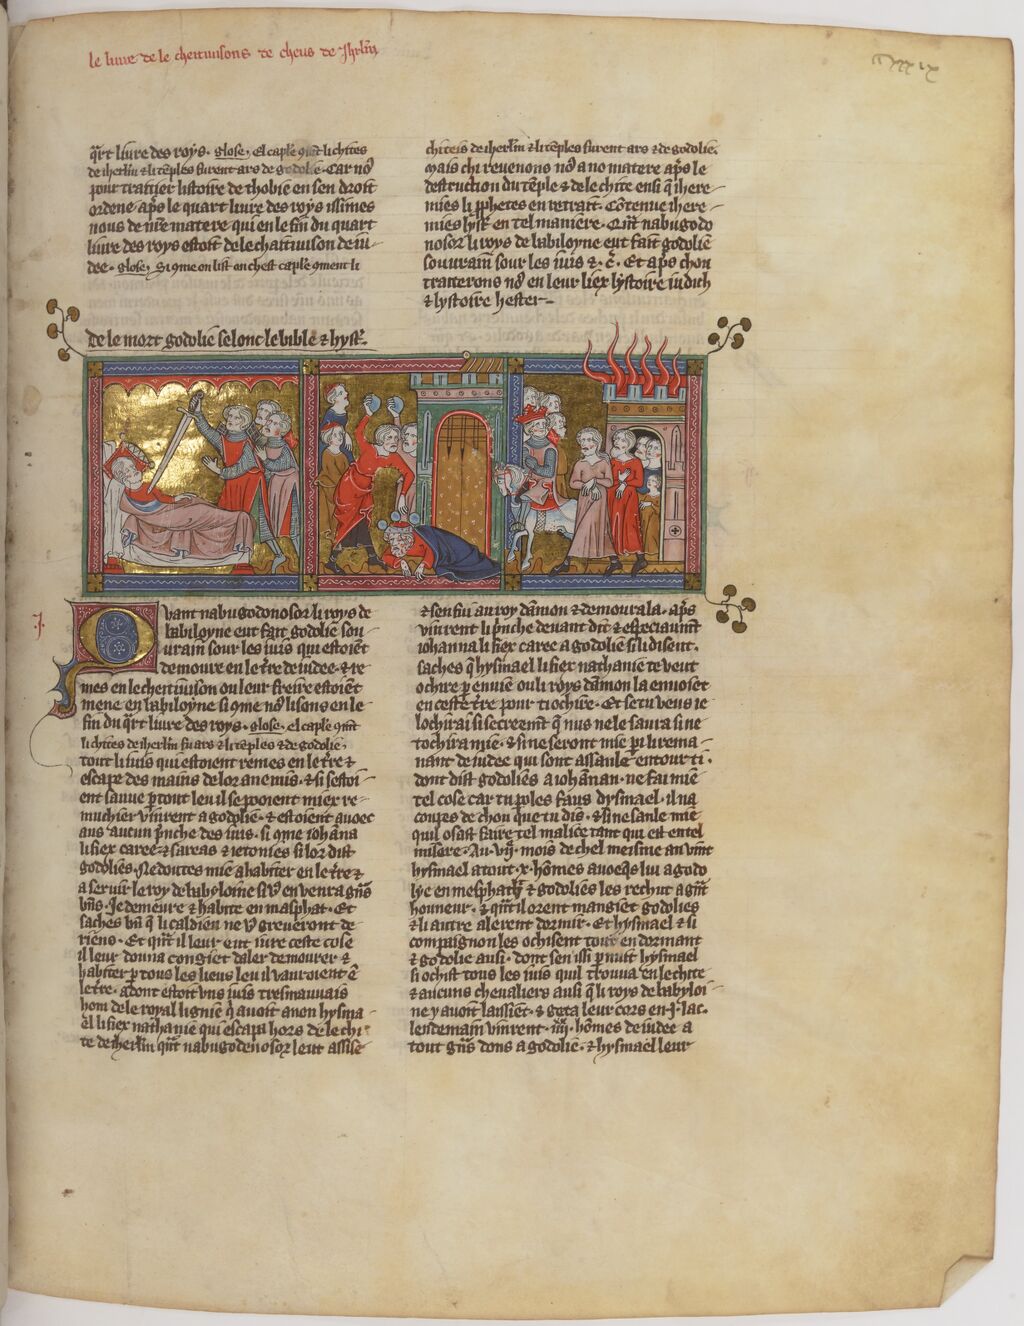 le liure de le cheitiuisons de cheus de Jhrlm
q̄rt liure des roys. glose. El caple q̄nt li chites
de iherl̄m ⁊ li tēples furent ars de godolie. Car no9
pour traitier listoire de thobie en sen droit
ordene ap̄s le quart liure des roys issimes
nous de nr̄e matere qui en le fin du quart
liure des roys estoit de le chaitiuison de iu-
dee. glose. si 9me on list en chest caple 9ment li
chiteis de iherl̄m ⁊ li tēples furent ars ⁊ de godolie.
mais chi reuenons no9 a no matere ap̄s le
destruction du tēple ⁊ de le chite ensi q̄ ihere-
mies li p̄phetes en retrait. Cōtenue ihere-
mies hyst̄. en tel maniere. Qn̄t nabugodo
nosor li roys de babiloyne eut fait godolie
souuerain sour les iuis ⁊ c̄. Et aps chou
traiterons no9 en leur liex lystoire iudich
⁊ lystoire hester-
de le mort godolie selonc le bible ⁊ hyst̄.
Quant nabugodonosor li roys de
babiloyne eut fait godolie sou-
urain sour les iuis qui estoiēt
demoure en le tr̄e de iudee. ⁊ re
mes en le cheitiuison ou leur freire estoiēt
mene en babiloyne si 9me no9 lisons en le
fin du q̄rt liure des roys. glose. el caple q̄nt
li chites de iherl̄m fu ars ⁊ li tēples ⁊ de godolie,
tout li iuis qui estoient remes en le tr̄e ⁊
escape des mains de lor anemis. ⁊ si sestoi-
ent sauue p tout leu il se pooient miex re-
muchier vinrent a godolie. ⁊ estoient auoec
aus aucun p̄nche des iuis. si 9me iohāna
li fiex caree ⁊ sareas ⁊ ietonies si lor dist
godolies. Ne doutes mie a habiter en le tr̄e ⁊
a seruir le roy de babylonie si v9 en venra gn̄s
bn̄s. Je demeure ⁊ habite en masphat. Et
saches bn̄ q̄ li caldien ne v9 greueront de
riens. Et qn̄t il leur eut iure ceste cose
il leur donna congiet daler demourer ⁊
habiter p tous les lieus leu il vauroient ē
le tr̄e. adont estoit vns iuis tresmauuais
hom de le royal lignie q̄ auoit anon hysma-
el li fiex nathanie qui escapa hors de le chi
te de iherl̄m qn̄t nabugodenosor leut assise
⁊ sen fui au roy dāmon ⁊ demoura la. ap̄s
vinrent li p̄nche deuant dit ⁊ especiaumt
iohanna li fiex caree a godolie si li disent.
saches q̄ hysmael li fiex nathanie te veut
ochire p enuie ou li roys dāmon la enuoiet
en ceste tr̄e pour ti ochirre. Et se tu veus ie
lochirai si secreemt q̄ nus ne le saura si ne
tochira mie. ⁊ si ne seront mie pi li rema-
nant de iudee qui sont assaule entour ti.
dont dist godolies a iohānan. ne fai mie
tel cose car tu poles faus dysmael. il na
coupes de chou que tu dis. ⁊ si ne sanle mie
quil osast faire tel malice tant qui est en tel
misere. Au .vij. mois de chel meisme an vint
hysmael a tout .x. hōmes auoeqs lui a godo
lye en mesphath ⁊ godolies les rechut a gn̄t
honneur. ⁊ qn̄t il orent mangiet godolies
⁊ li autre alerent dormir. Et hysmael ⁊ si
compaignon les ochisent tous en dormant
⁊ godolie ausi. dont sen issi p nuit hysmael
si ochist tous les iuis quil trouua en le chite
⁊ aucuns cheualiers ausi q̄ li roys de babyloi-
ne y auoit laissiet. ⁊ geta leur cors en .j. lac.
lendemain vinrent .iiij. hōmes de iudee a
tout gn̄s dons a godolie. ⁊ hysmael leur